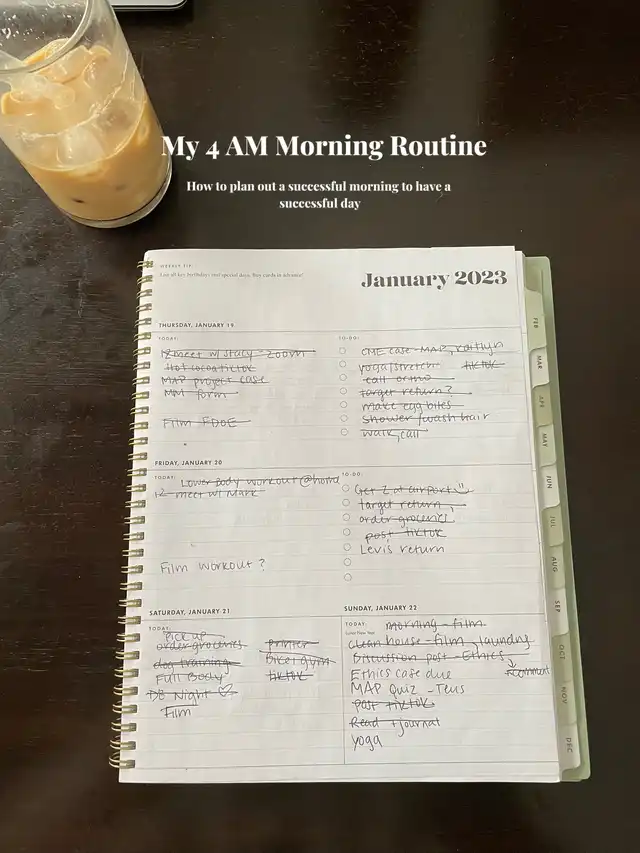 My 4 AM Morning Routine
How to plan out a successful morning to have a
successful day
WEEKLY TIP
List all key birthdays and special dates. Buy cards in advance!
January 2023
THURSDAY, JANUARY 19
TODAY:
12 meet w/ stacy - zoom
Hot cocoa tiktok
MAP project case
MM form
Film FDOE
TO-DO:
CME case - MAP, Kaitlyn
yoga/stretch tiktok
call ortho
target return?
make egg bites
Shower/wash hair
walk, call
FRIDAY, JANUARY 20
TODAY:
Lower Body workout @home
12 - meet w/ Mark
Film workout?
TO-DO:
Get Z at airport
target return
order groceries
post tiktok
Levis return
SATURDAY, JANUARY 21
TODAY:
Pick up
order groceries
dog training
Full Body
DB Night ♡
Film
printer
bike/gym
tiktok
SUNDAY, JANUARY 22
TODAY:
Lunar New Year
morning - film
clean house - film, laundry
Discussion post - Ethics
Ethics case due
comment
MAP Quiz - Tues
Post tiktok
Read + journal
yoga
FEB
MAR
APR
MAY
JUN
JUL
AUG
SEP
OCT
NOV
DEC